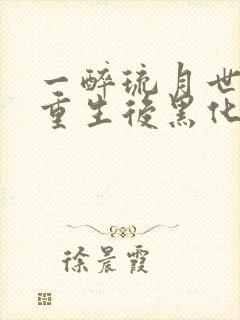 一醉琉月世
重生後黑化
徐晨霞